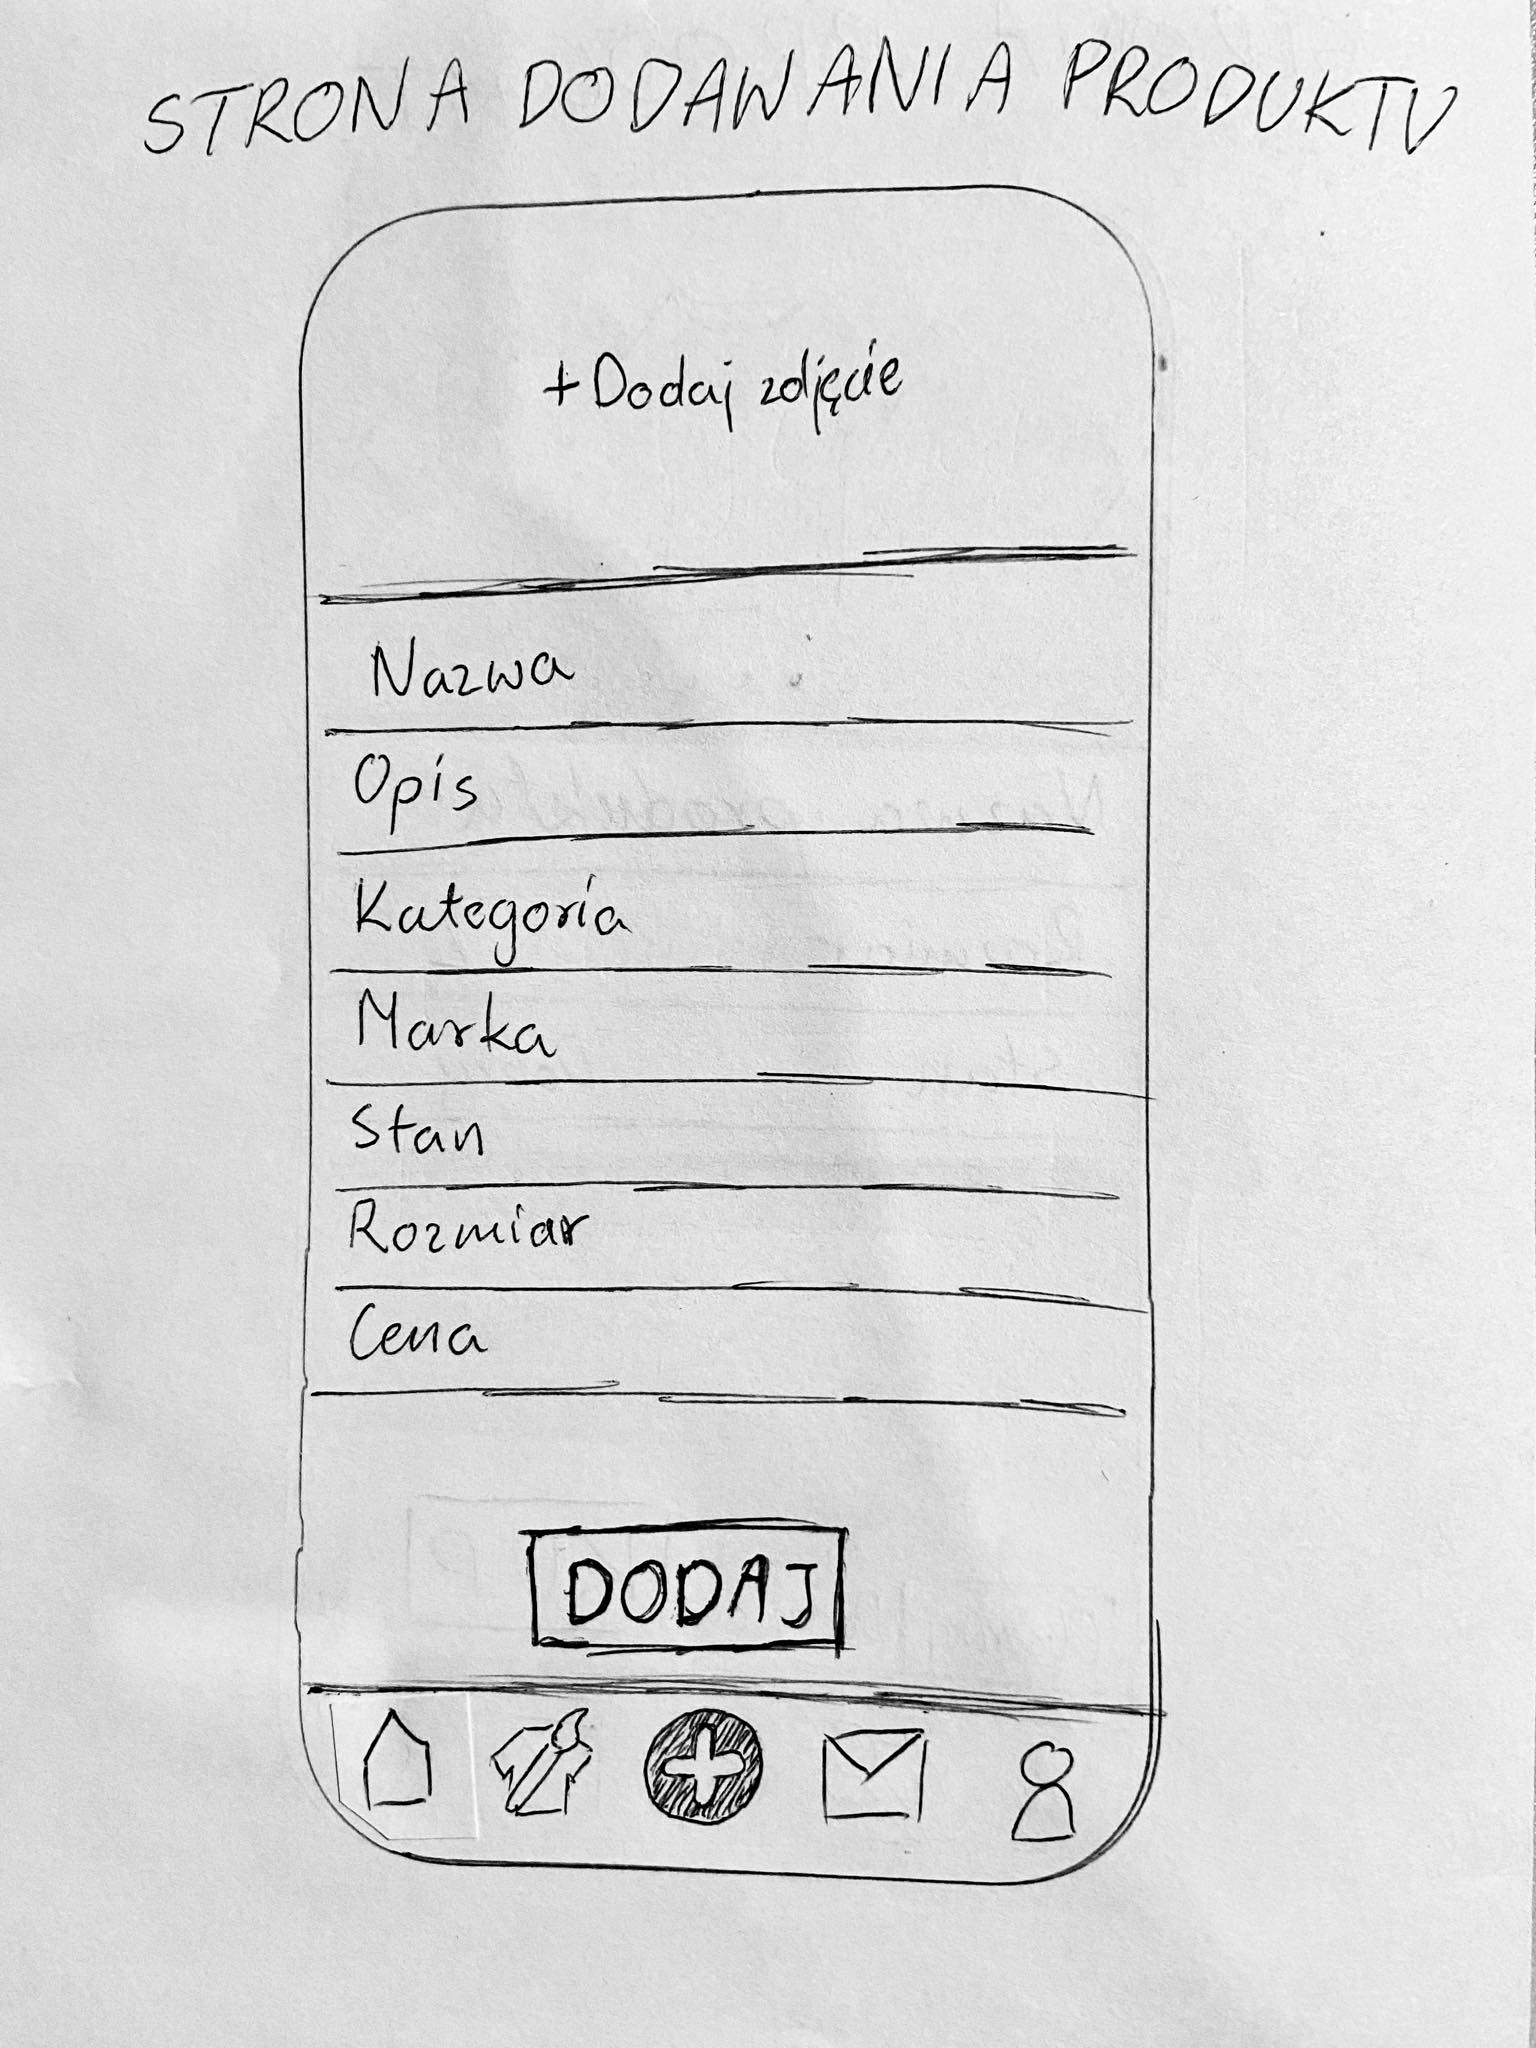 STRONA DODAWANIA PRODUKTU
+Dodaj zdjęcie
Nazwa
Opis
Kategoria
Marka
Stan
Rozmiar
Cena
DODAJ